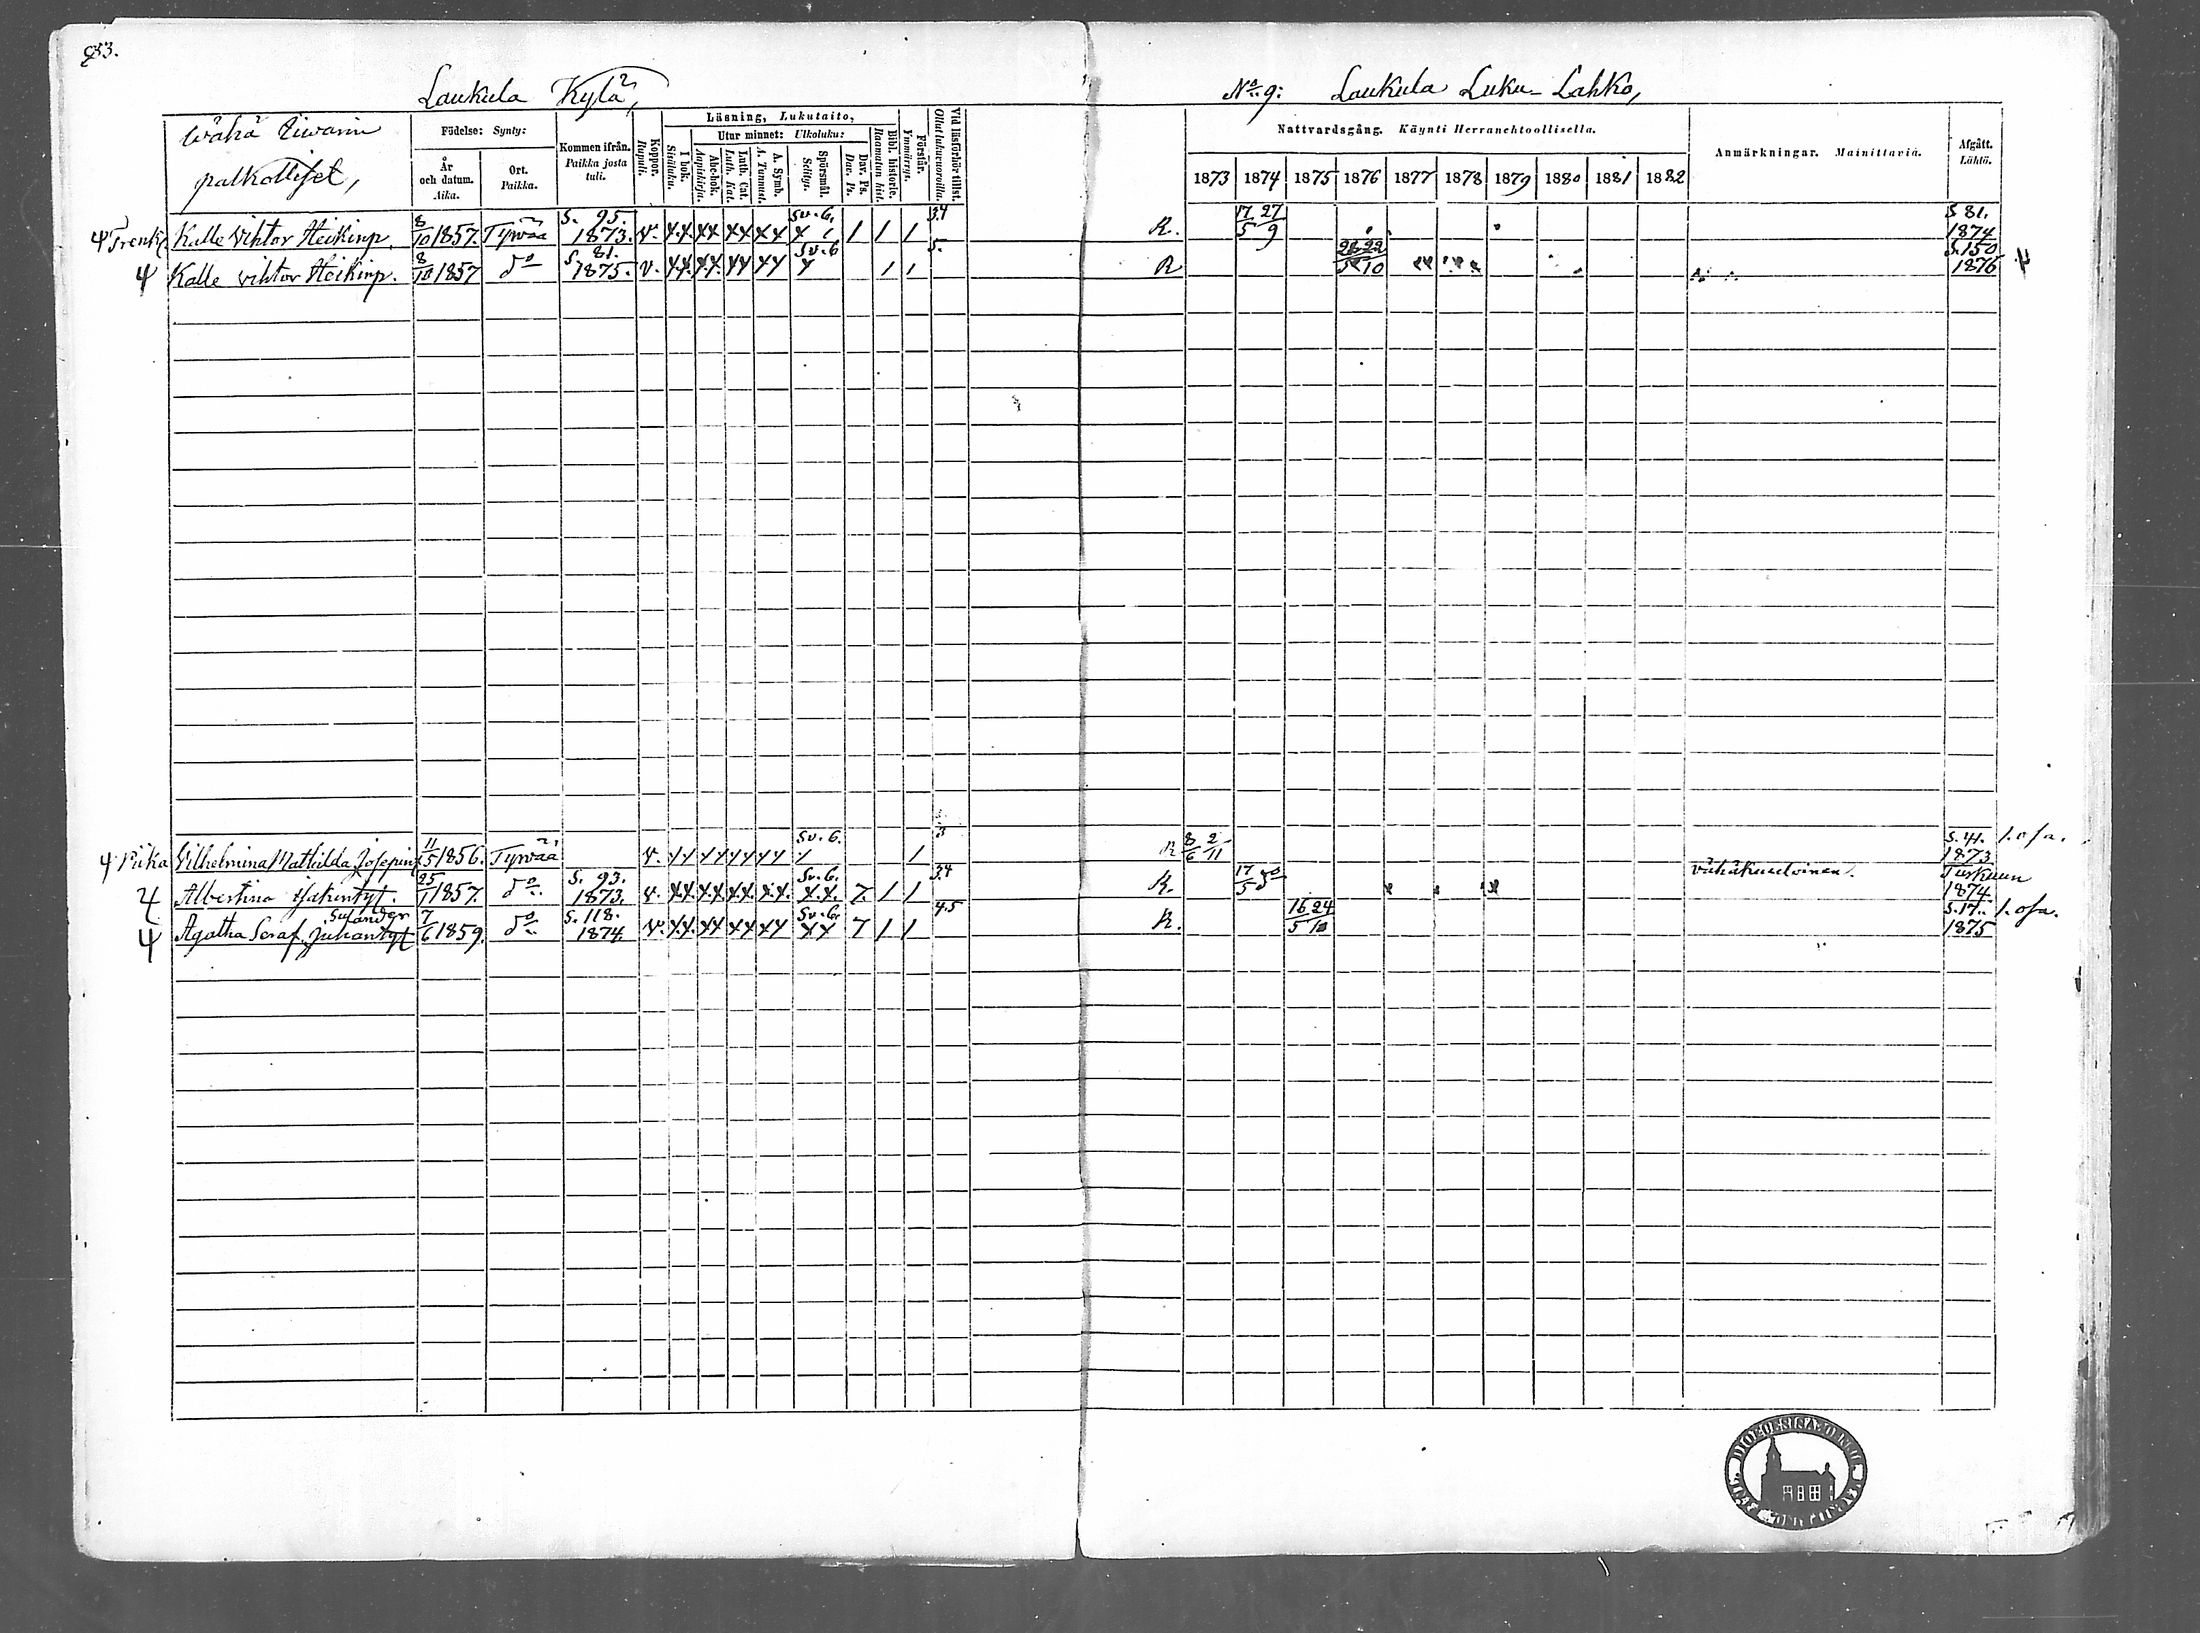 Laukula Kylä,
N:o 9: Laukula Luku-Lahko,
Wähä
palkolliset,
Födelse: Synty:
År och datum. Aika.
Ort. Paikka.
Kommen ifrån. Paikka josta tuli.
Koppor. Rupuli.
Läsning, Lukutaito,
I bok. Sisäluku.
Utur minnet: Ulkoluku:
Abc-bok. Aapiskirja.
Luth. Cat. Luth. Kat.
A. Symb. A. Tunnust.
Spörsmål. Selitys.
Dav. Ps. Dav. Ps.
Bibl. historie. Raamatun hist.
Förstår. Ymmärrys.
Vid läsförhör tillst. Ollut lukuvuoroilla.
Nattvardsgång. Käynti Herranehtoollisella.
1873 1874 1875 1876 1877 1878 1879 1880 1881 1882
Anmärkningar. Mainittavia.
Afgått. Lähtö.
Trenki Kalle Vihtor Heikinp. 8/10 1857. Tyrvää S. 95. 1873. v. Sv. 6. 3.4 R. 17/5 27/9 S 81. 1874
Kalle Vihtor Heikinp. 8/10 1857 do S. 81. 1875. v. Sv. 6 5. R 22/10 S. 150 1876
Piika Vilhelmina Mathilda Josepint 11/5 1856. Tyrvää v. Sv. 6. 3 R 8/6 2/11 S. 41. 1873 1. osa.
Albertina 25/1 1857. do S. 93. 1873. v. Sv. 6. 7. 3.4 R. 17/5 do vähäkuuloinen. Turkuun 1874
Agatha Seraf. Juhantyt Sulander 7/6 1859. do S. 118. 1874. v. Sv. 6. 7 4.5 R. 16/5 24/10 S. 17. 1875 1. osa.